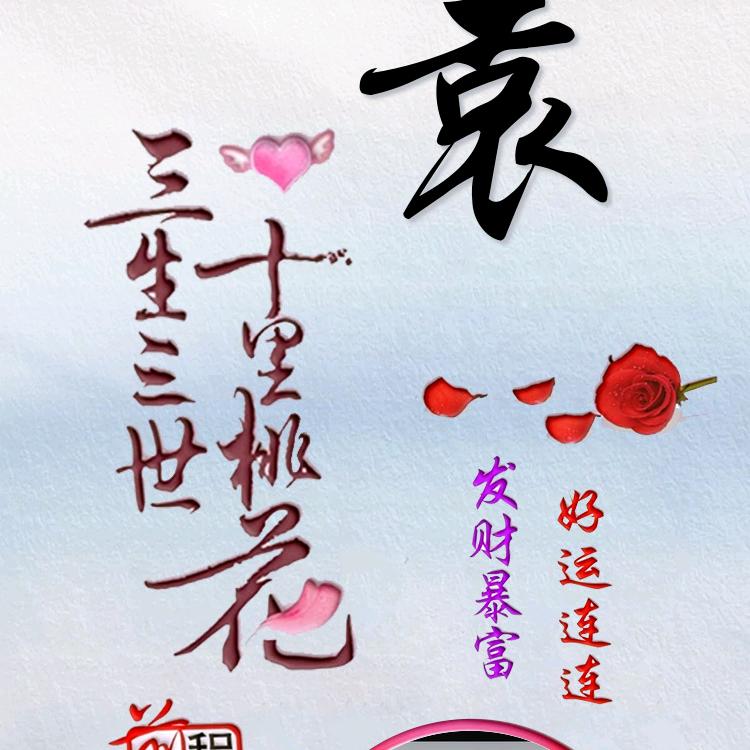 袁
三生三世
十里桃花
好运连连
发财暴富